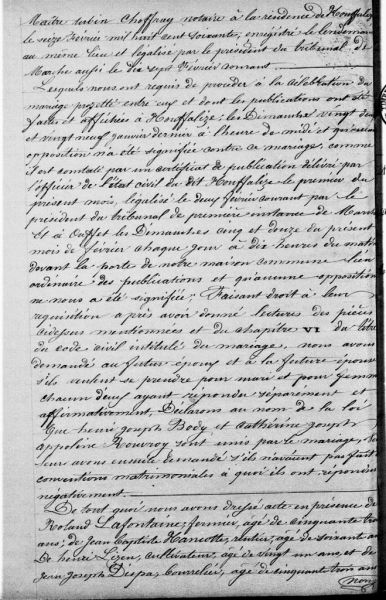 Maître Sabin Choffray notaire à la résidence de Houffalize
le seize Février mil huit cent soixante, enregistré le lendemain
au même lieu et légalisé par le président du tribunal de
Marche aussi le dix sept Février courant.
Lesquels nous ont requis de procéder à la célébration du
mariage projetté entre eux et dont les publications ont été
faites et affichées à Houffalize; les Dimanches vingt deux
et vingt neuf janvier dernier à l'heure de midi et qu'aucune
opposition n'a été signifiée contre ce mariage, comme
il est constaté par un certificat de publication délivré par
l'officier de l'état civil du dit Houffalize le premier du
présent mois, légalisé le deux février courant par le
président du tribunal de première instance de Marche
Et à Ouffet les Dimanches cinq et douze du présent
mois de février chaque jour à dix heures du matin
devant la porte de notre maison commune lieu
ordinaire des publications et qu'aucune opposition
ne nous a été signifiée; Faisant droit à leur
requisition après avoir donné lectures des pièces
cidessus mentionnées et du chapitre VI du titre
du code civil intitulé du mariage, nous avons
demandé au futur époux et à la future épouse
s'ils veulent se prendre pour mari et pour femme
chacun d'eux ayant repondu séparement et
affirmativement, Déclarons au nom de la loi
Que henri joseph Body et Cathérine joseph
appoline Rouvroy sont unis par le mariage,
leur avons ensuite demandé s'ils n'avaient pas fait
conventions matrimoniales à quoi ils ont réponse
negativement.
De tout quoi nous avons dressé acte en présence de
Roland Lafontaine, fermier, agé de cinquante trois
ans; de Jean Baptiste Hancotte, rentier, agé de soixante ans
De henri Lizen, cultivateur, agé de vingt un ans, et de
Jean Joseph Dispa, bourrelier, agé de cinquante trois ans
nous